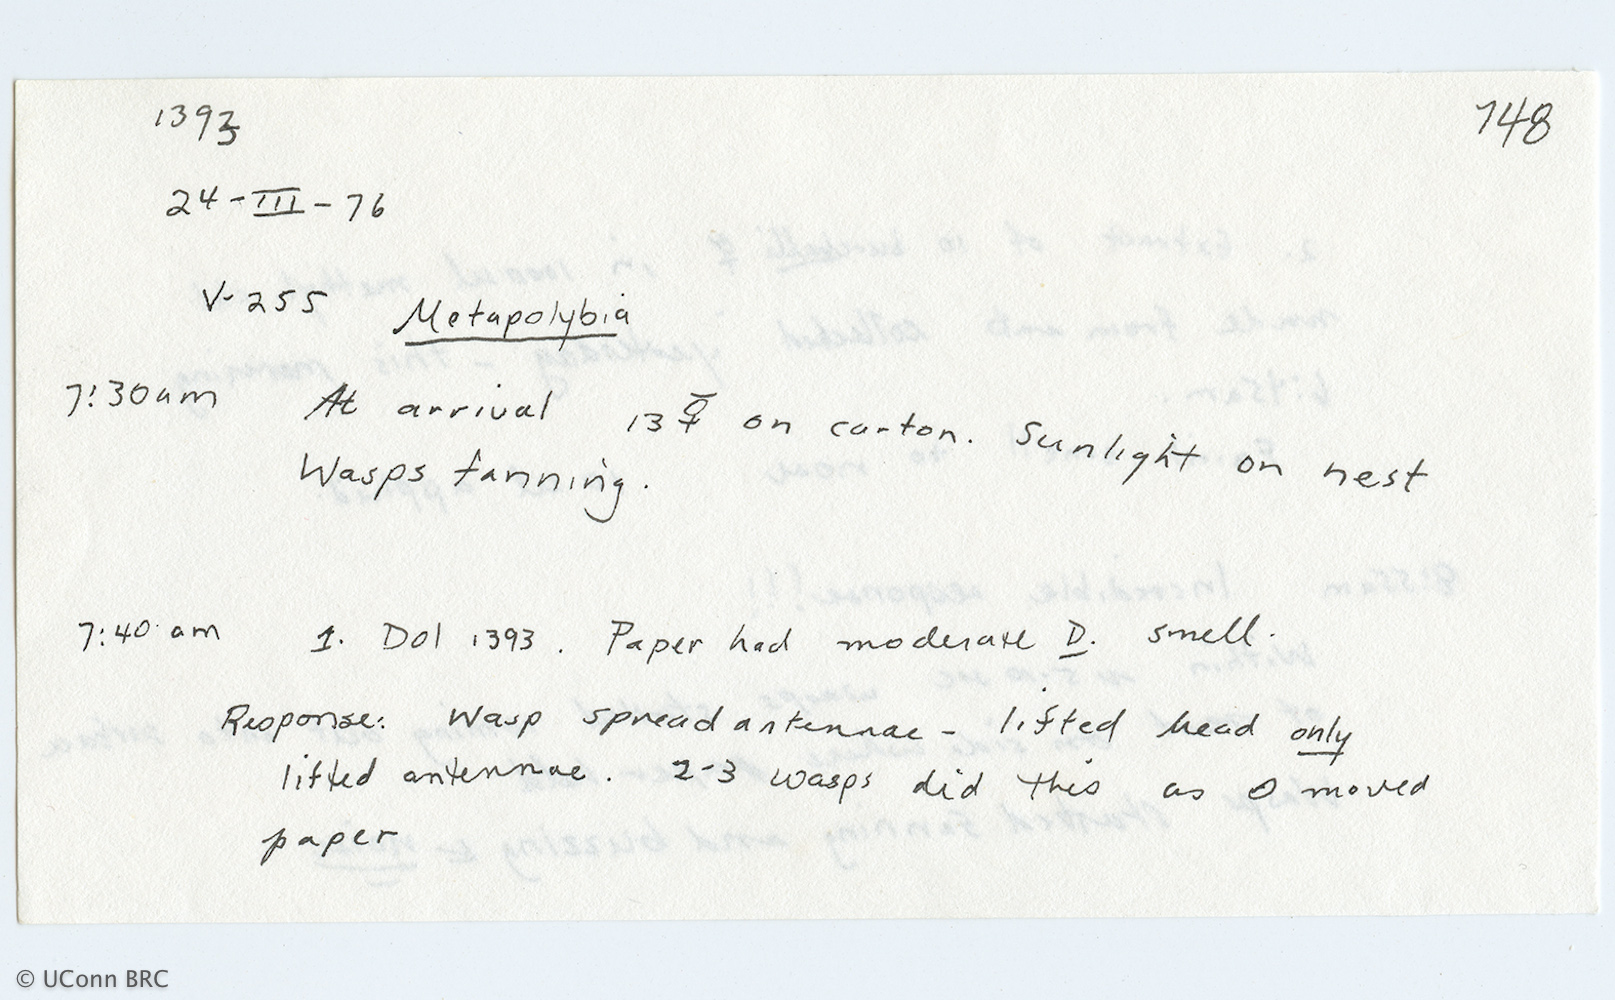 1393
748
24-III-76
V-255 Metapolybia
7:30am At arrival 13 ☿ on carton. Sunlight on nest
Wasps fanning.
7:40 am 1. Dol 1393. Paper had moderate D. smell.
Response: Wasp spread antennae - lifted head only
lifted antennae. 2-3 wasps did this as I moved
paper
© UConn BRC